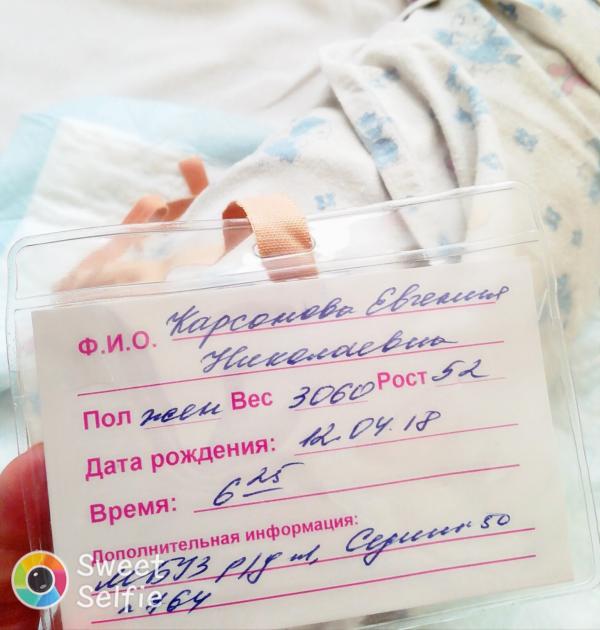 Ф.И.О. Карсонова Евгения
Николаевна
Пол жен Вес 3060 Рост 52
Дата рождения: 12.04.18
Время: 6 25
Дополнительная информация:
МБУЗ р/д 50
764
Sweet
Selfie